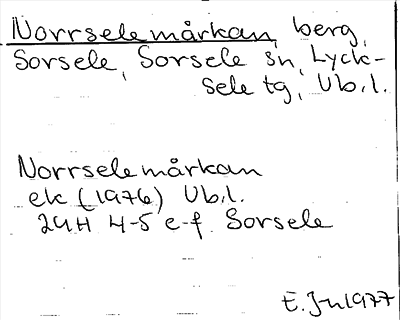 Norrselemårkan, berg,
Sorsele, Sorsele sn, Lyck-
sele tg, Vb.l.
Norrselemårkan
ek (1976) Vb.l.
24H 4-5 e-f Sorsele
E. Jn 1977